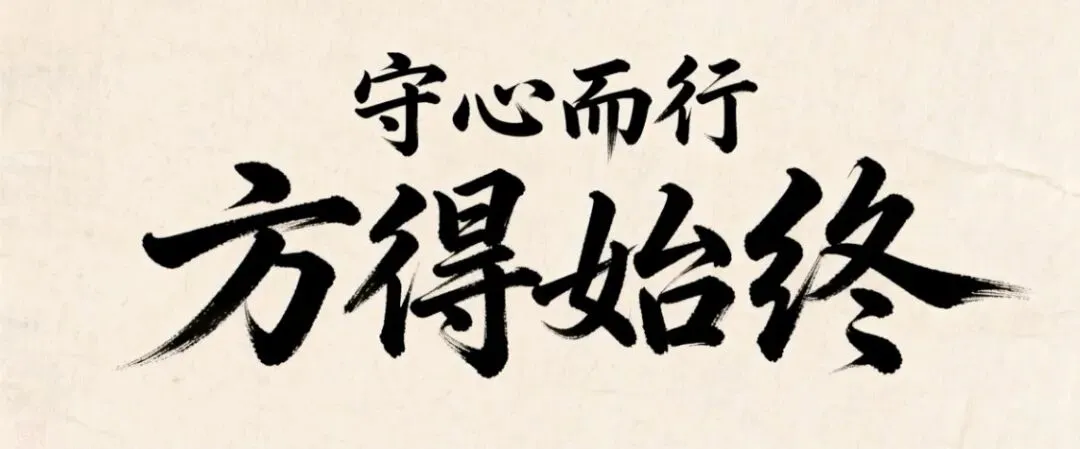 守心而行
方得始终